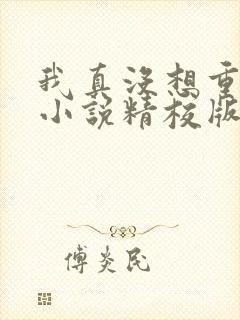 我真没想重
小说精校版
傅炎民